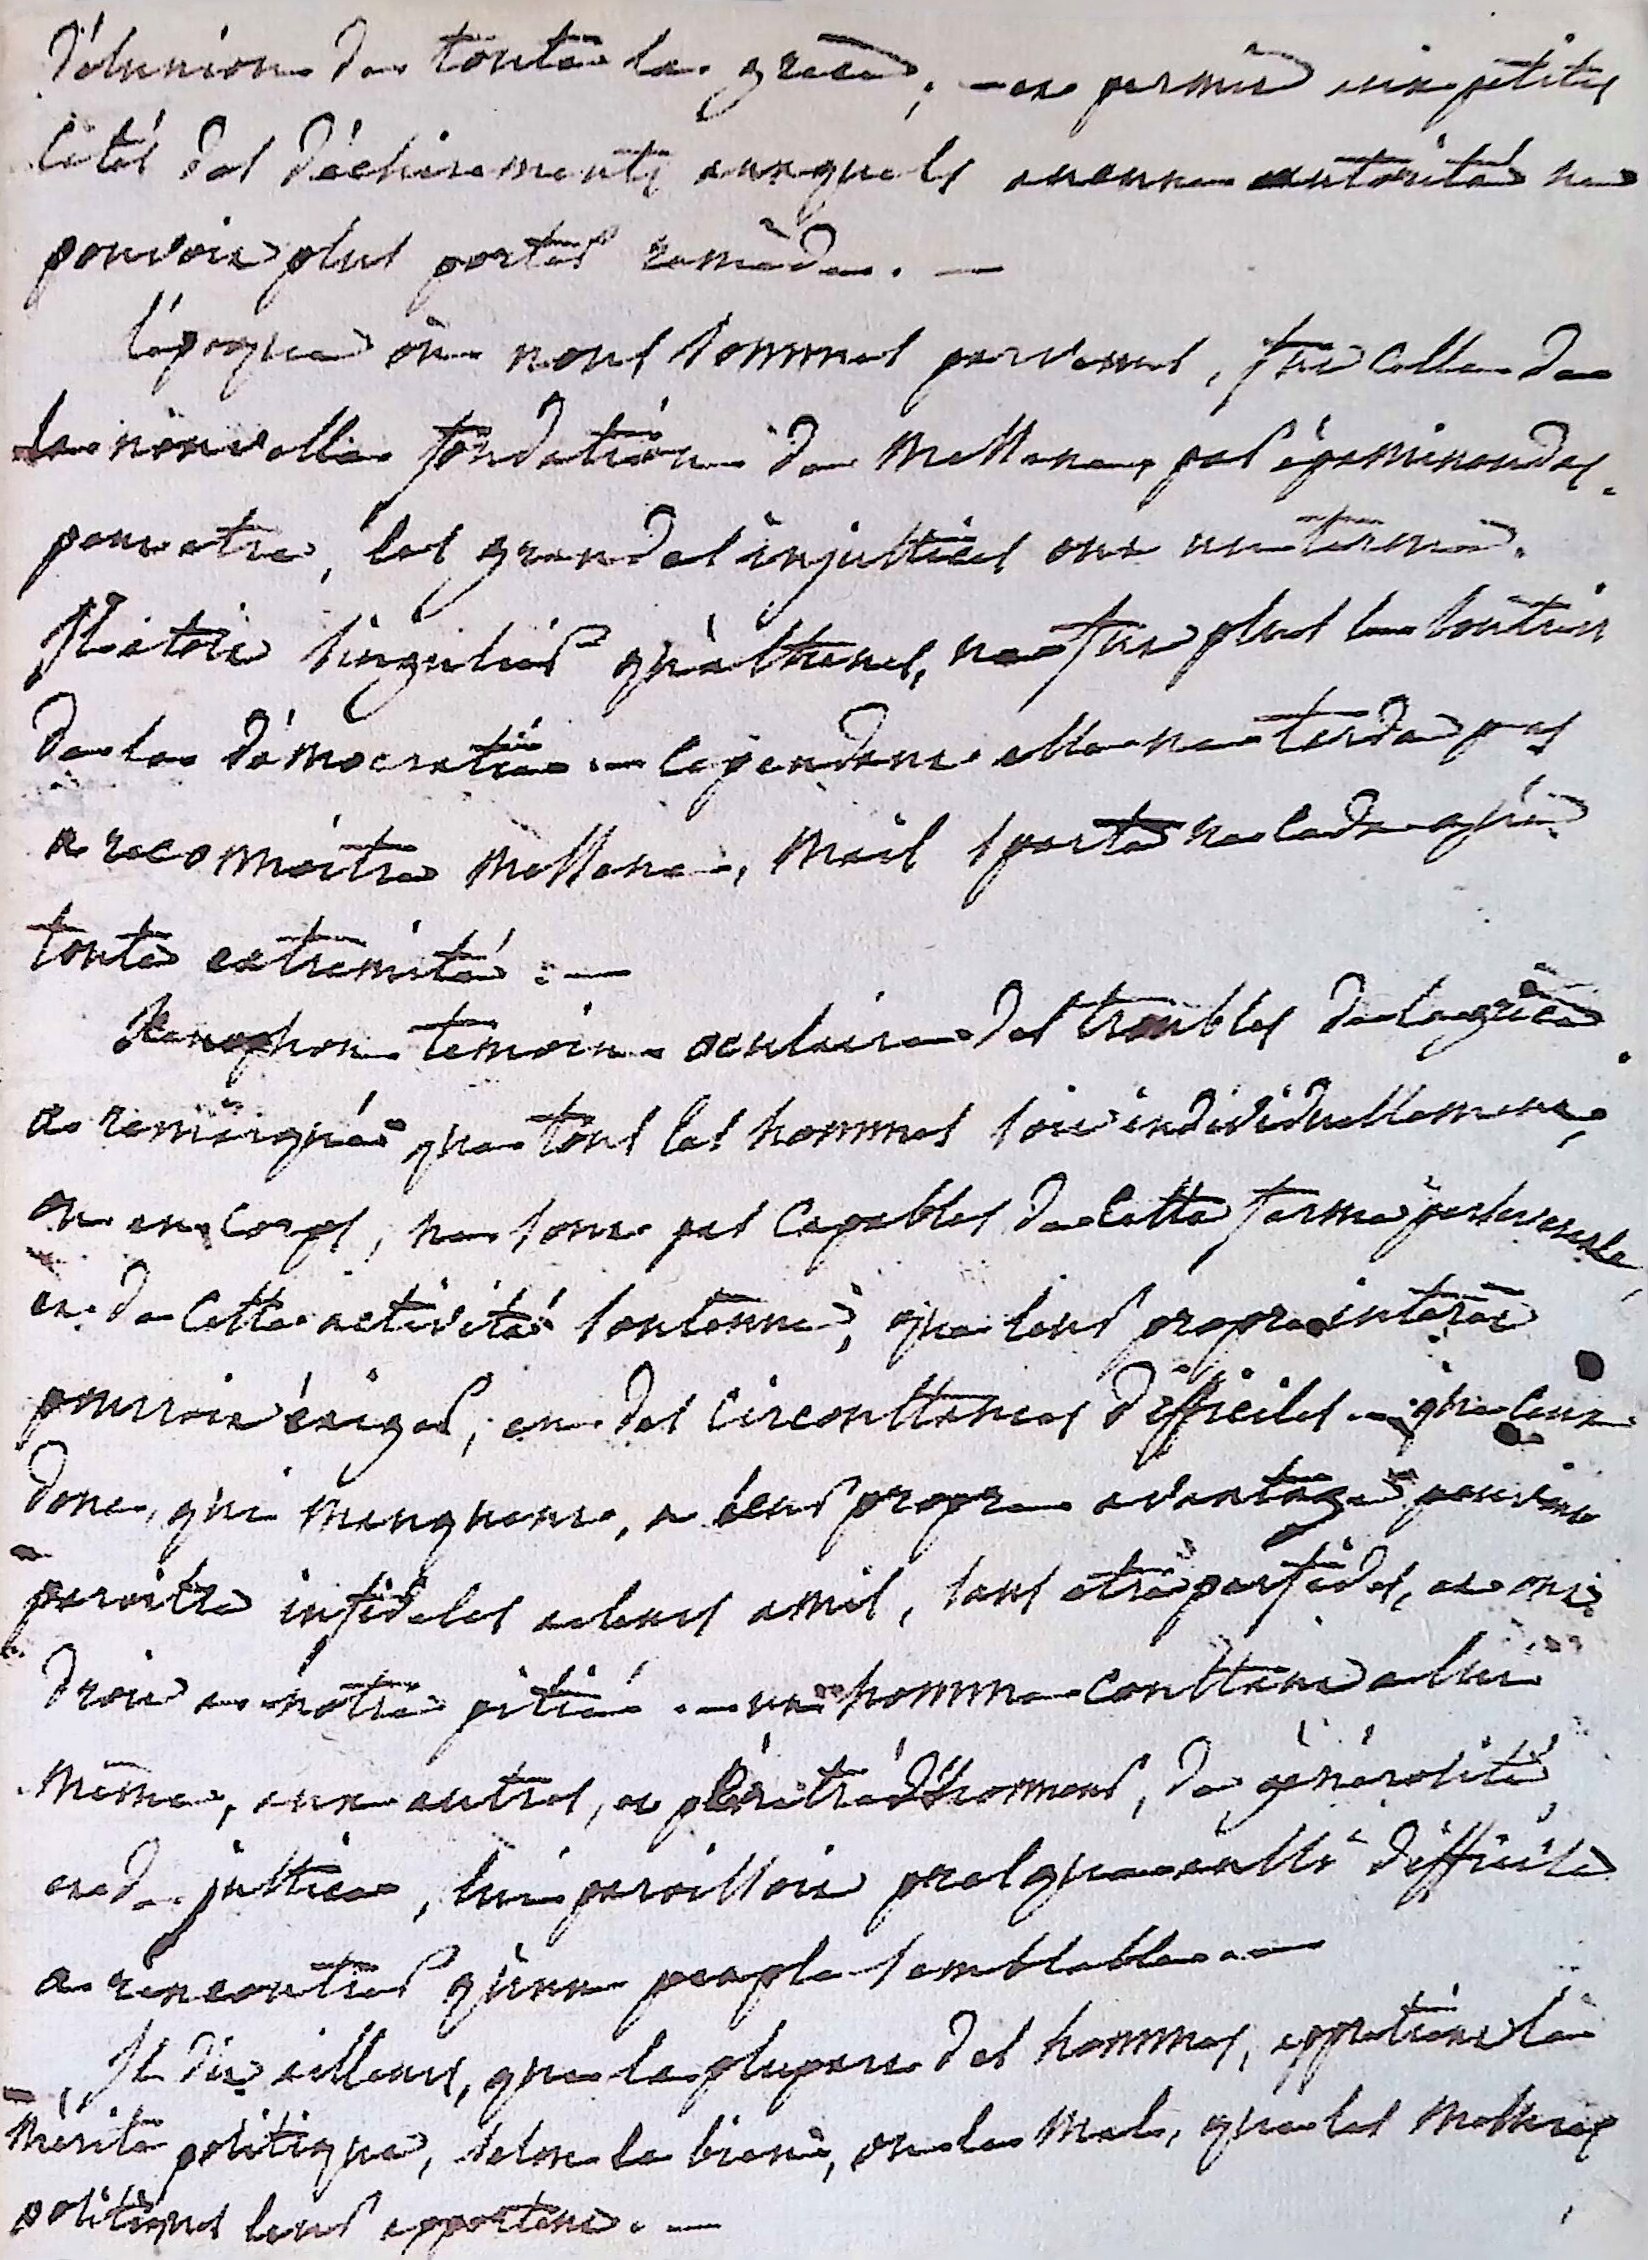 désunion de toute la grèce, et permit aux petites
cités des déchirements auxquels aucune autorité ne
pouvoit plus porter remède. —
l'époque où nous sommes parvenus, fut celle de
la nouvelle fondation de Messene, par épaminondas.
peut etre, les grandes injustices ont un terme.
Il etoit singulier qu'athenes, ne fut plus le soutien
de la démocratie. — cependant elle ne tarda pas
a reconnoitre Messene, mais sparte ne ceda qu'a
toute extremité. —
Xenophon temoin oculaire des troubles de la grèce
a remarqué que tous les hommes soit individuellement,
ou en corps, ne sont pas capables de cette ferme perseverance,
et de cette activité soutenue, que leur propre interêt
pourroit éxiger, en des circonstances difficiles. — que ceux
donc, qui manquent, a leur propre avantage peuvent
paroitre infideles a leurs amis, sans etre perfides, et ont
droit a notre pitié. — un homme constant a lui
même, aux autres, a d'honneur, de générosité,
et de justice, lui paroissoit presque aussi difficile
a rencontrer qu'un peuple semblable. —
Il dit ailleurs, que la plupart des hommes, apprétient le
mérite politique, selon le bien, ou le mal, que les mesures
politiques leur apportent. —